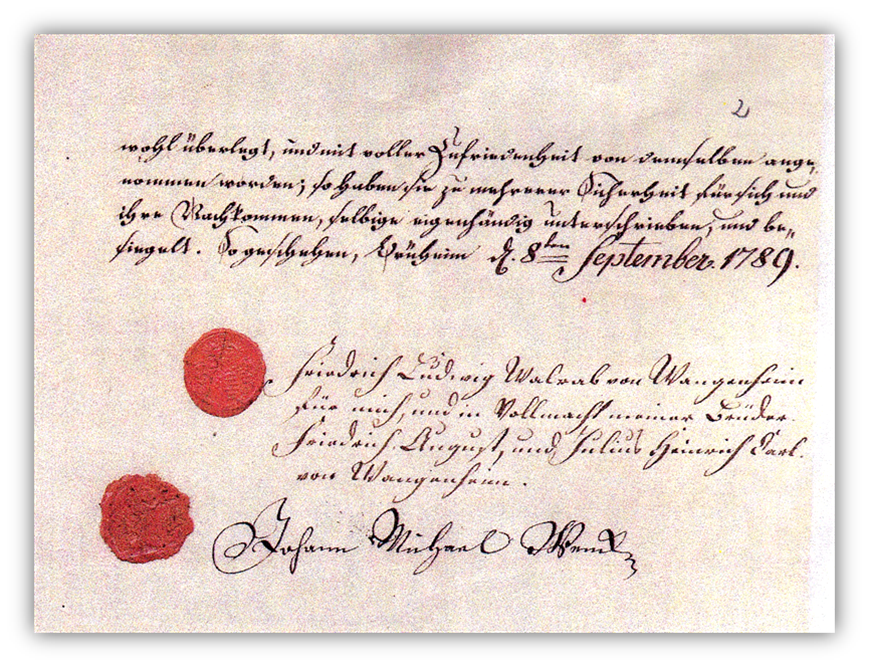 2
wohl überlegt, und mit voller Zufriedenheit von demselben ange,
nommen worden; so haben sie zu mehrerer Sicherheit für sich und
ihre Nachkommen, selbige eigenhändig unterschrieben, und be„
siegelt. So geschehen, Brüheim d. 8ten September. 1789.
Friedrich Ludwig Walrab von Wangenheim
für mich, und in Vollmacht meiner Brüder.
Friedrich August, und Julius Heinrich Carl.
von Wangenheim.
Johann Michael Wenck